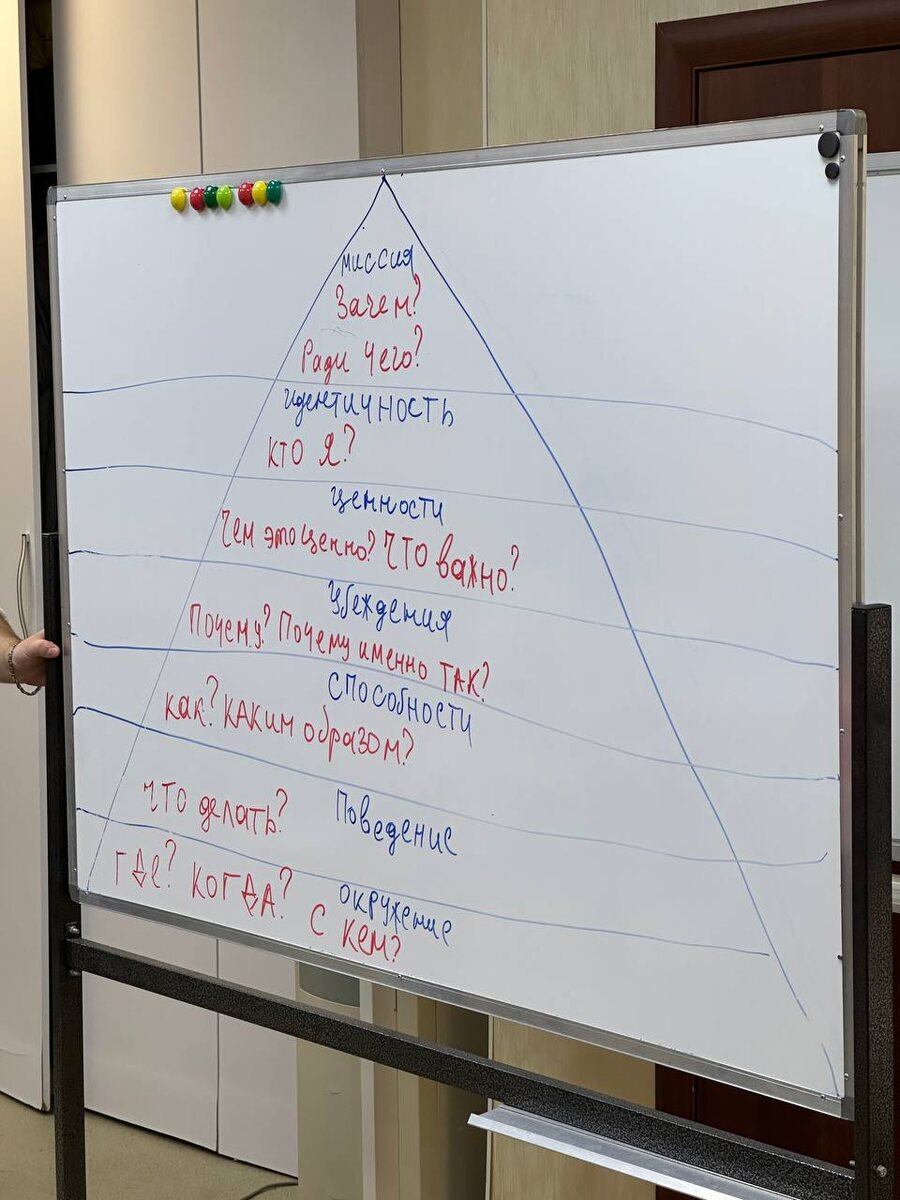 миссия
Зачем?
Ради чего?
идентичность
кто я?
ценности
Чем это ценно? Что важно?
Убеждения
Почему? Почему именно так?
способности
как? каким образом?
Что делать? Поведение
где? когда? окружение
с кем?